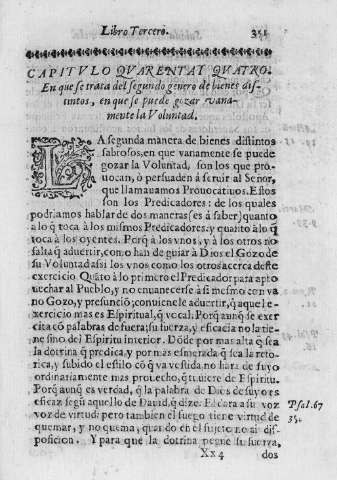 Libro Tercero. 351
CAPITVLO QVARENTAY QVATRO.
En que se trata del segundo genero de bienes dis-
tintos, en que se puede gozar vana-
mente la Voluntad.
LA segunda manera de bienes distintos
sabrosos, en que vanamente se puede
gozar la Voluntad, son los que pro-
vocan, ò persuaden à servir al Señor,
que llamavamos Provocativos. Estos
son los Predicadores: de los quales
podriamos hablar de dos maneras (es à saber) quanto
a lo q̃ toca à los mismos Predicadores, y quanto à lo q̃
toca à los oyentes. Porq̃ à los vnos, y à los otros no
falta q̃ advertir, como han de guiar à Dios el Gozo de
su Voluntad assi los vnos como los otros acerca deste
exercicio. Quãto à lo primero el Predicador para apro
vechar al Pueblo, y no envanecerse à si mesmo con va
no Gozo, y presunciõ; convienele advertir, q̃ aquel e-
xercicio mas es Espiritual, q̃ vocal: Porq̃ aunq̃ se exer
cita cõ palabras de fuera; su fuerza, y eficacia no la tie-
ne sino del Espiritu interior. Dõde por mas alta q̃ sea
la dotrina q̃ predica, y por mas esmerada q̃ sea la reto-
rica, y subido el estilo cõ q̃ va vestida, no hara de suyo
ordinariamente mas provecho, q̃ tuviere de Espiritu.
Porq̃ aunq̃ es verdad, q̃ la palabra de Dios de suyo es
eficaz segũ aquello de David, q̃ dize. El dara à su voz
voz de virtud: pero tambien el fuego tiene virtud de
quemar, y no quema, quando en el sujeto no ai dis-
posicion. Y para que la dotrina pegue su fuerza,
Psal. 67
35.
Xx 4 dos